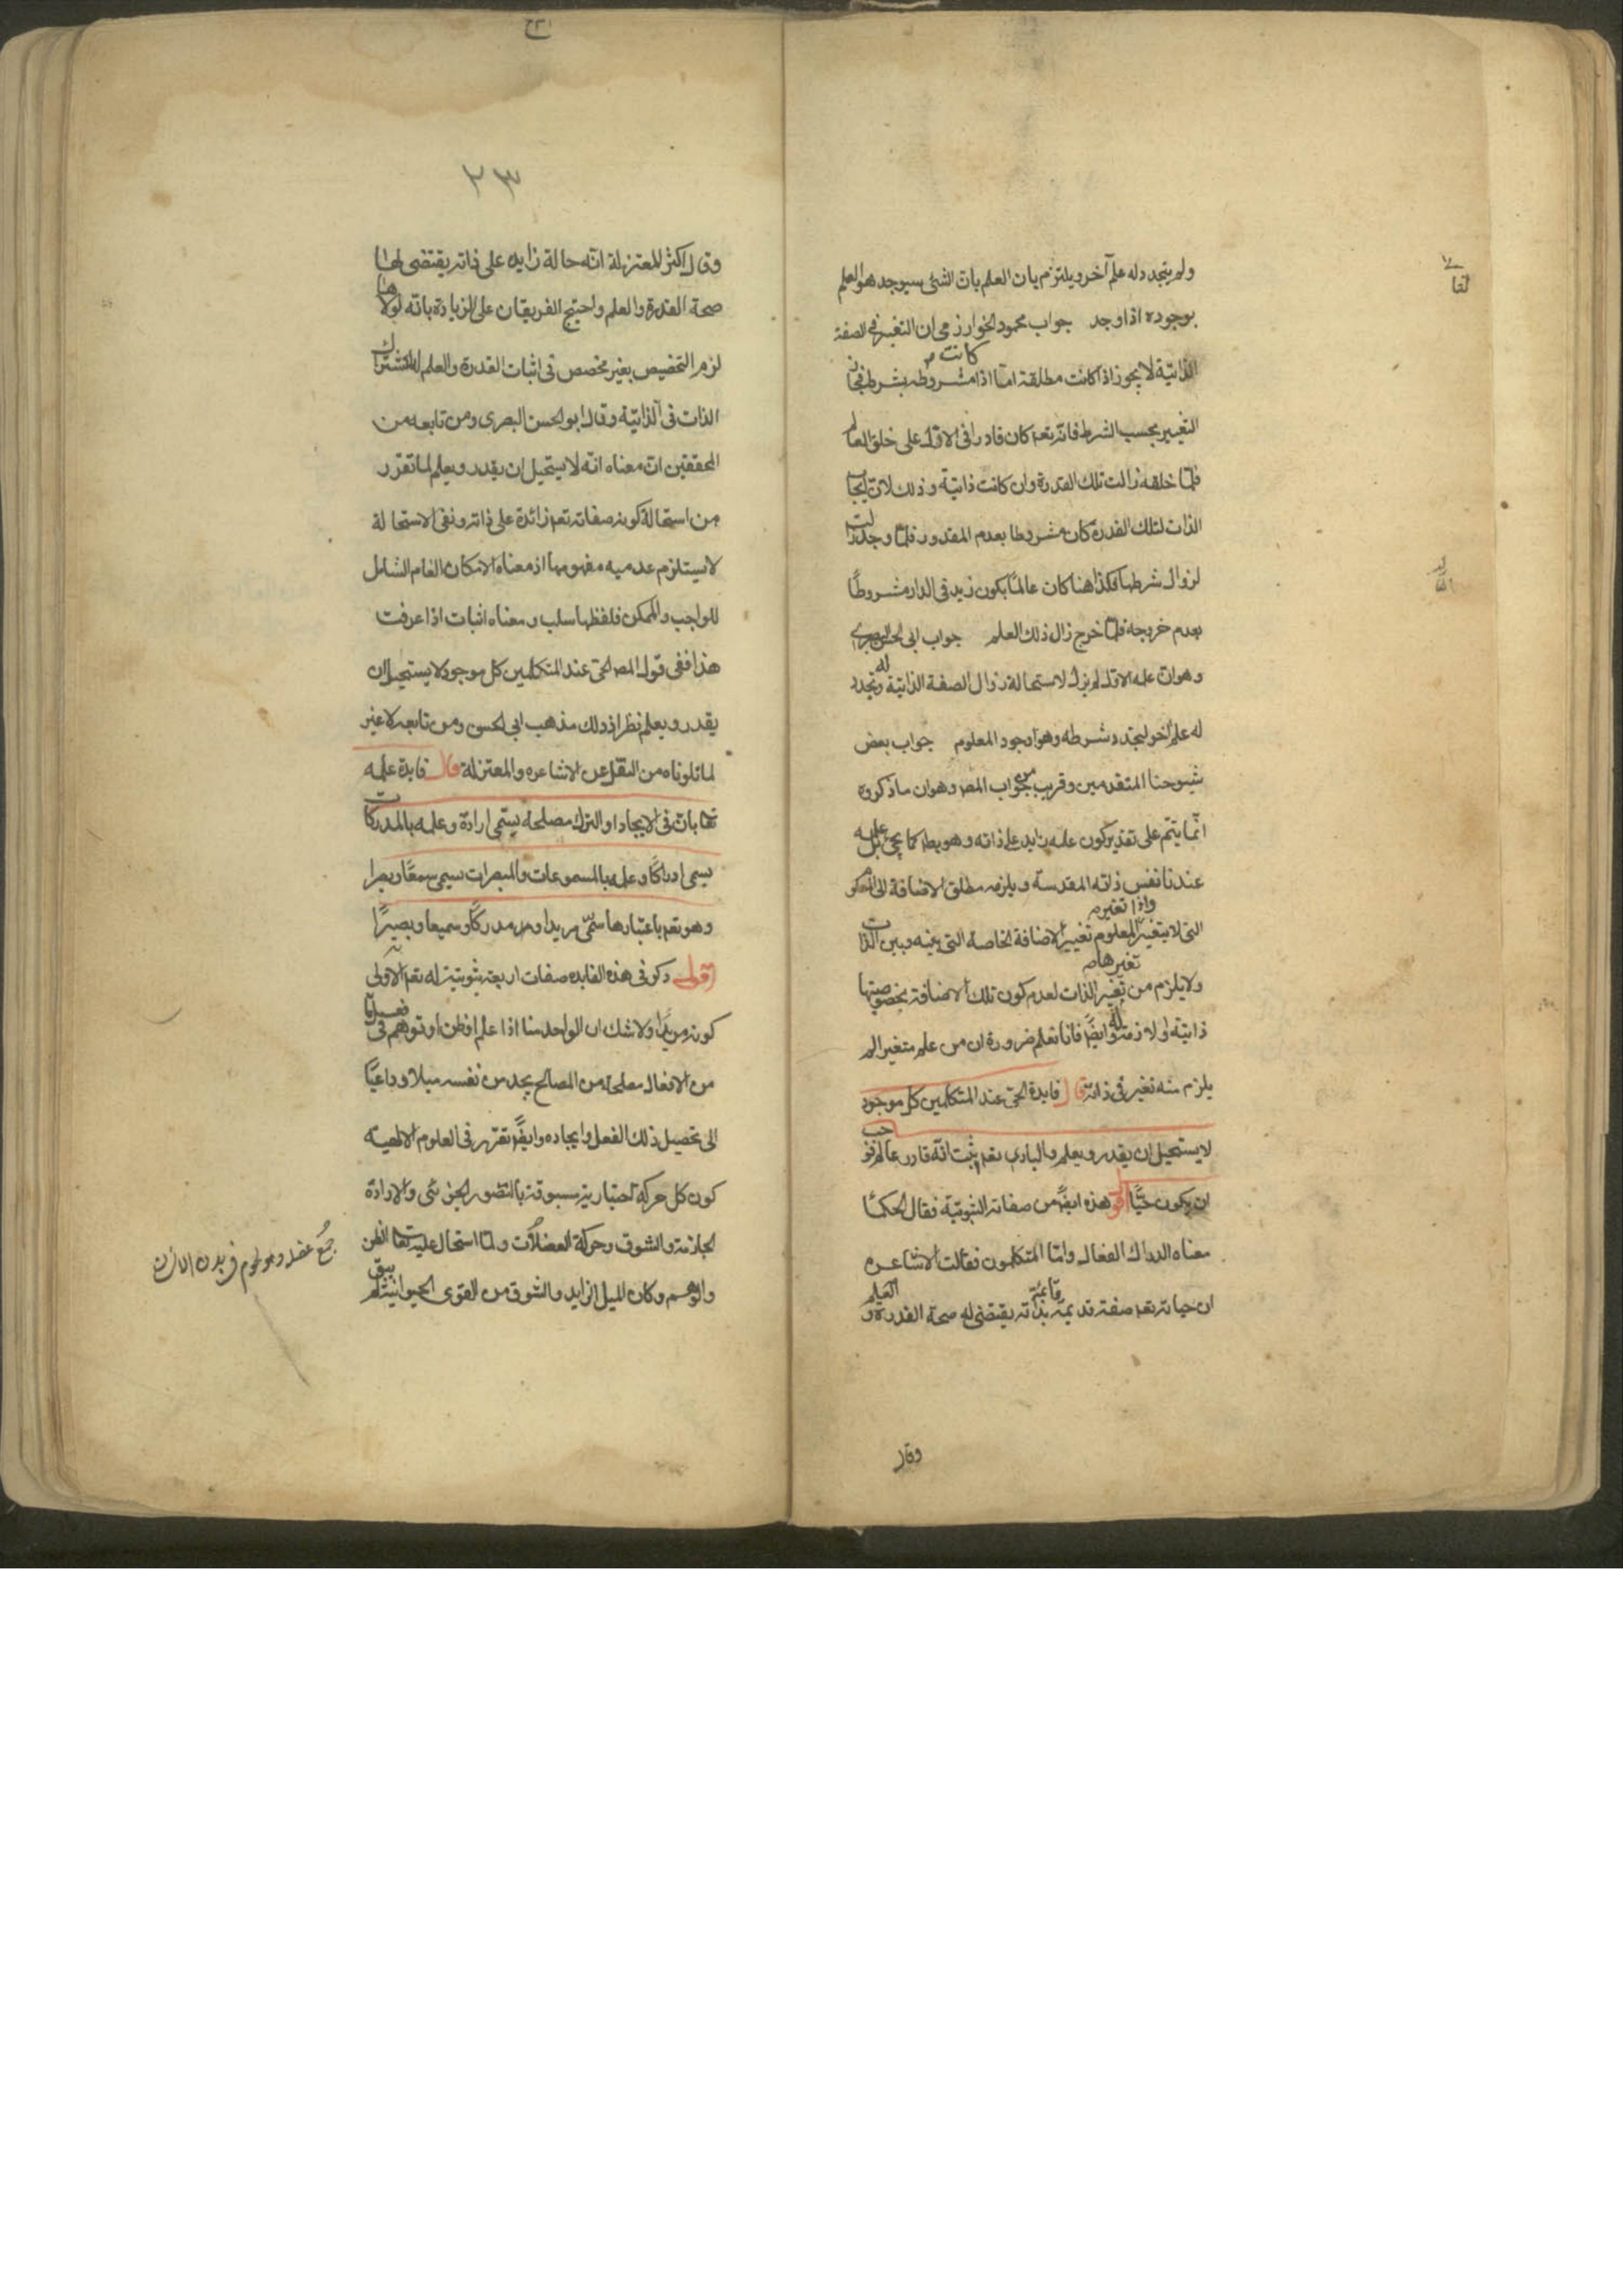 ولم يتجدد له علم آخر ويلتزم بان العلم بان الشئ سيوجد هو العلم
بوجوده اذا وجد جواب محمود الخوارزمى ان التغير فى الصفة
الذاتية لا يجوز اذا كانت مطلقة اما اذا كانت مشروطه بشرط فجاز
التغيير بحسب الشرط فانه تعم كان قادرا فى الاول على خلق العالم
فلما خلقه زالت تلك القدرة وان كانت ذاتية وذلك لان ايجاب
الذات لتلك القدرة كان مشروطا بعدم المقدور فلما وجد زالت
لزوال شرطها فكذا هنا كان عالما بكون زيد فى الدار مشروطا
بعدم خروجه فلما خرج زال ذلك العلم جواب ابى الحسن البصرى
وهو ان علمه الاول لم يزل لاستحالة زوال الصفة الذاتية له وتجدد
له علم آخر لتجدد شرطه وهو وجود المعلوم جواب بعض
شيوخنا المتقدمين وقريب من جواب المص وهو ان ما ذكروه
انما يتم على تقدير كون علمه زايد على ذاته وهو بط كما يجئ بل علمه
عندنا نفس ذاته المقدسة ويلزمه مطلق الاضافة الى
التى لا يتغير واذا تغير المعلوم تغير الاضافة الخاصة التى بينه وبين الذات
ولا يلزم من تغيرها تغير الذات لعدم كون تلك الاضافة بخصوصيتها
ذاتية له ولا لازمته وايضا فانا نعلم ضرورة ان من علم متغيرا لم
يلزم منه تغير فى ذاته قال فايدة الحق عند المتكلمين كل موجود
لا يستحيل ان يقدر ويعلم والبارى تعم ثبت انه قادر عالم فوجب
ان يكون حيا اقول هذه ايضا من صفاته الثبوتية فقال الحكما
معناه الدراك الفعال واما المتكلمون فقالت الاشاعره
ان حياته تعم صفة قديمة قائمة بذاته يقتضى له صحة القدرة والعلم
وقال
٢٣
وقال اكثر المعتزلة انه حالة زايده على ذاته يقتضى لها
صحة القدرة والعلم واحتج الفريقان على الزيادة بانه لولاها
لزم التخصيص بغير مخصص فى اثبات القدرة والعلم لاشتراك
الذات فى الذاتية وقال ابو الحسن البصرى ومن تابعه من
المحققين ان معناه انه لا يستحيل ان يقدر ويعلم لما تقرر
من استحالة كون صفاته تعم زائدة على ذاته ونفى الاستحالة
لا يستلزم عدميه مفهومها اذ معناه الامكان العام الشامل
للواجب والممكن فلفظها سلب ومعناه اثبات اذا عرفت
هذا ففى قول المص الحق عند المتكلمين كل موجود لا يستحيل ان
يقدر ويعلم نظر اذ ذلك مذهب ابى الحسن ومن تابعه لا غير
لما تلوناه من النقل عن الاشاعره والمعتزلة قال فايدة علمه
تعا بان فى الايجاد او الترك مصلحة يسمى ارادة وعلمه بالمدركات
يسمى ادراكا وعلمه بالمسموعات والمبصرات يسمى سمعا وبصرا
وهو تعم باعتبارها سمى مريدا ومدركا وسميعا وبصيرا
اقول ذكر فى هذه الفايده صفات اربعة ثبوتية له تعم الاولى
كونه مريدا ولا شك ان الواحد منا اذا علم او ظن او توهم فى فعل
من الافعال مصلحة من المصالح يجد من نفسه ميلا وداعيا
الى تحصيل ذلك الفعل وايجاده وايضا تقرر فى العلوم الالهية
كون كل حركة اختيارية مسبوقة بالتصور الجزئى والارادة
الجازمة والشوق وحركة العضلات ولما استحال عليه تعا الظن
والوهم وكان الميل الزايد والشوق من القوى الحيوانية لم يبق